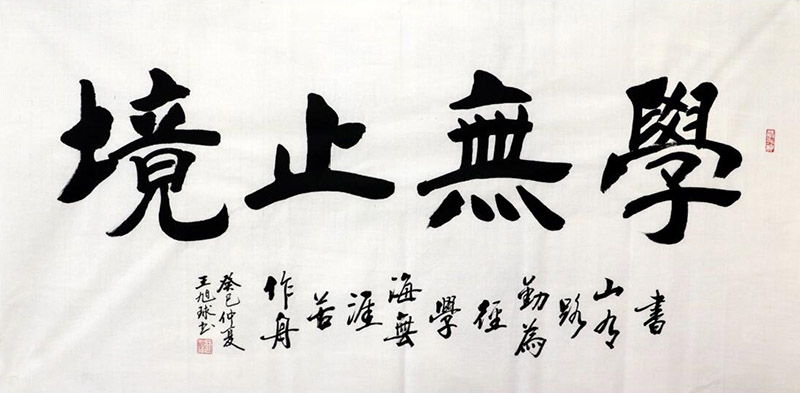 學無止境
書山有路勤為徑學海無涯苦作舟
癸巳仲夏
王旭球书